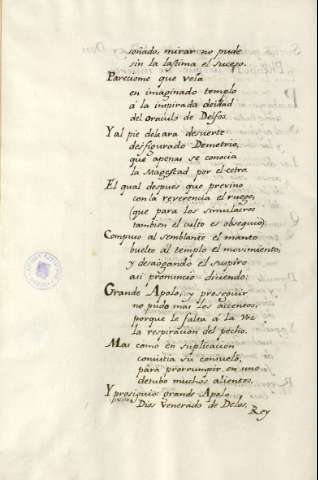 soñado, mirar no pude
sin la lastima el suceso.
Pareciome que veía
en imaginado templo
á la inspirada deidad
del oraculo de Delfos.
Y al pie dela ara desuerte
desfigurado Demetrio,
que apenas se conocia
la Magestad por el cetro.
El qual despues que previno
con la reverencia el ruego,
(que para los simulacros
tambien el culto es obsequio)
Compuso al semblante el manto
buelto al templo el movimiento,
y desaogando el suspiro
asi pronunció diciendo:
Grande Apolo, y proseguir
no pudo mas los accentos,
porque le falta á la voz
la respiracion del pecho.
Mas como en suplicacion
convitia su consuelo,
para prorrumpir en uno
detubo muchos alientos.
Y prosiguio: grande Apolo
Dios venerado de Delos,
Rey